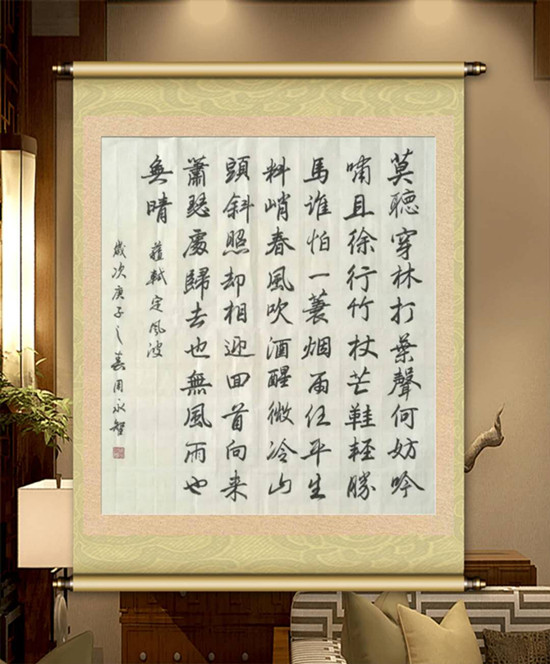 莫聽穿林打葉聲何妨吟
嘯且徐行竹杖芒鞋輕勝
馬誰怕一蓑烟雨任平生
料峭春風吹酒醒微冷山
頭斜照却相迎回首向来
蕭瑟處歸去也無風雨也
無晴
蘇軾定風波
歲次庚子之春周永智